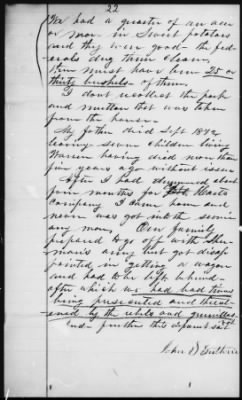 22
We had a quarter of an acre
or more in Sweet potatoes
and they were good - the fed-
erals dug them clean.
There must have been 25 or
thirty bushels of them.
I dont recollect the pork
and mutton that was taken
from the house.
My father died Sept 1872
leaving seven children living
Warren having died more than
five years ago without issue.
After I had deserted about
four months for
Company I came home and
never was got into the service
any more. Our family
prepared to go off with Sher-
man's army but got disap-
pointed in getting a wagon
and had to be left behind -
after which we had bad times
being persecuted and threat-
ened by the rebels and guerrillas.
And further this deponent saith
John D Guthrie